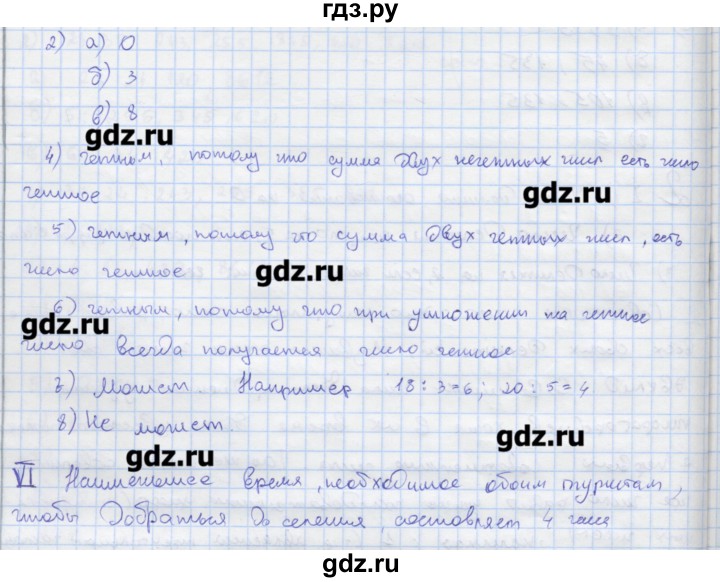 гдз.ру
2) а) 0
б) 3
в) 8
gdz.ru
4) четным, потому что сумма двух нечетных чисел есть число
gdz.ru
четное
5) четным, потому что сумма двух четных чисел, есть
число четное
gdz.ru
6) четным, потому что при умножении на четное
gdz.ru
число всегда получается число четное
7) Может. Например 18 : 3 = 6; 20 : 5 = 4
8) Не может.
gdz.ru
gdz.ru
VI Наименьшее время, необходимое обоим туристам,
чтобы добраться до селения, составляет 4 часа
gdz.ru